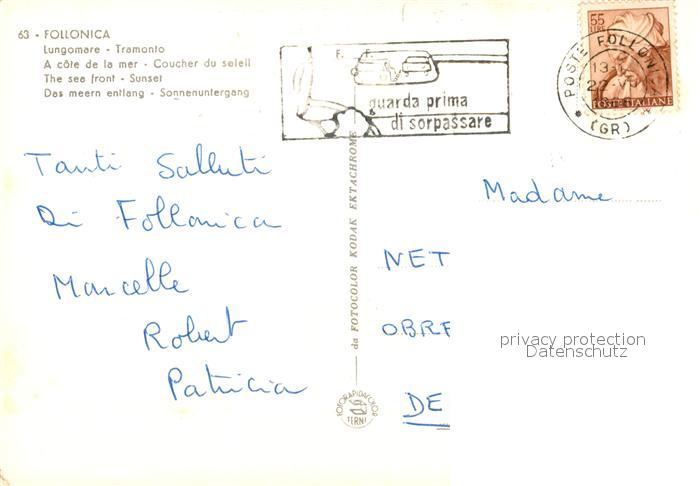 63 - FOLLONICA
Lungomare - Tramonto
A côte de la mer - Coucher du soleil
The sea front - Sunset
Das meern entlang - Sonnenuntergang
guarda prima
di sorpassare
55
LIRE
POSTE ITALIANE
POSTE FOLLON
13
(GR)
Tanti Salluti
Di Follonica
Marcelle
Robert
Patricia
da FOTOCOLOR KODAK EKTACHROME
FOTORAPIDACOLOR
TERNI
Madame
NET
OBRF
DE
privacy protection
Datenschutz